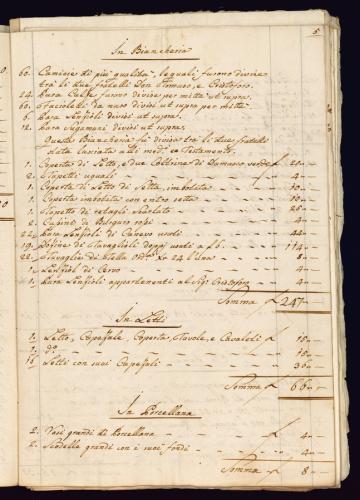 5
In Biancheria
60. Camicie di più qualità, le quali furono divise
tra li due fratelli Don Tomaso, e Cristoforo.
24. Para Calze furono divise per metta ut supra.
60. Fazioletti da naso divisi ut supra per metta
6. Para divisi ut supra.
12. Para Sugamani divisi ut supra.
Questa Biancheria fù divisa tra li due fratelli
stata lasciata alli med.mi ex Testamento.
1. Coperta di Letto, e due Coltrine di Damasco verde £ 20
2. Tapetti uguali 4
1. Coperta di Letto di Setta, imbotita 10
1. Coperta imbotita con entro setta 10
1. Tapetto di retaglio scarlato 25
2. di Bologna 4
22. Para Lenzioli di Canevo usati 44
19. Dozine di Tavaglioli doppj usati a £ 6 114
22. Tavaglie di 24 l'una 8
1. Lenziol di
1. Para Lenzioli appartenenti al Sig.r Cristoforo
Somma £ 247
In Letti
1. Letto, Capezzale, Coperta, Tavole, e Cavaletti £ 15
1. d.o 15
16 Letti con suoi Capezali 36
Somma £ 66
In Porcellana
2. Vasi grandi di Porcellana £ 4
2. Scodelle grandi con i suoi fondi 4
Somma £ 8